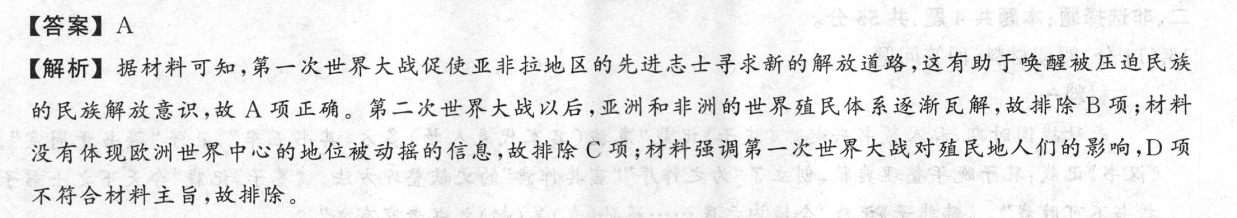 【答案】A
【解析】据材料可知,第一次世界大战促使亚非拉地区的先进志士寻求新的解放道路,这有助于唤醒被压迫民族
的民族解放意识,故 A 项正确。第二次世界大战以后,亚洲和非洲的世界殖民体系逐渐瓦解,故排除 B 项;材料
没有体现欧洲世界中心的地位被动摇的信息,故排除 C 项;材料强调第一次世界大战对殖民地人们的影响,D 项
不符合材料主旨,故排除。